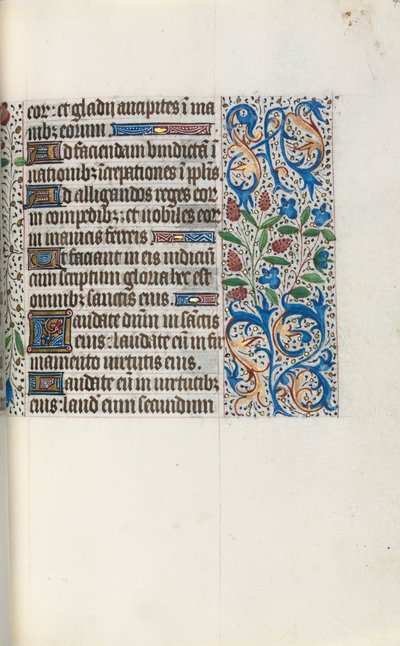 eoꝝ: et gladij ancipites ī ma
nibꝫ eorum
Ad faciendam vindictā ī
nationibꝫ: īcrepationes ī pplis
Ad alligandos reges eoꝝ
in compedibꝫ: et nobiles eoꝝ
in manicis ferreis
Ut faciant in eis iudiciū
conscriptum gloria hec est
omnibꝫ sanctis eius
Laudate dnm in sanctis
eius: laudate eū in fir
mamento virtutis eius.
Laudate eū in virtutibꝫ
eius: laud eum secundum